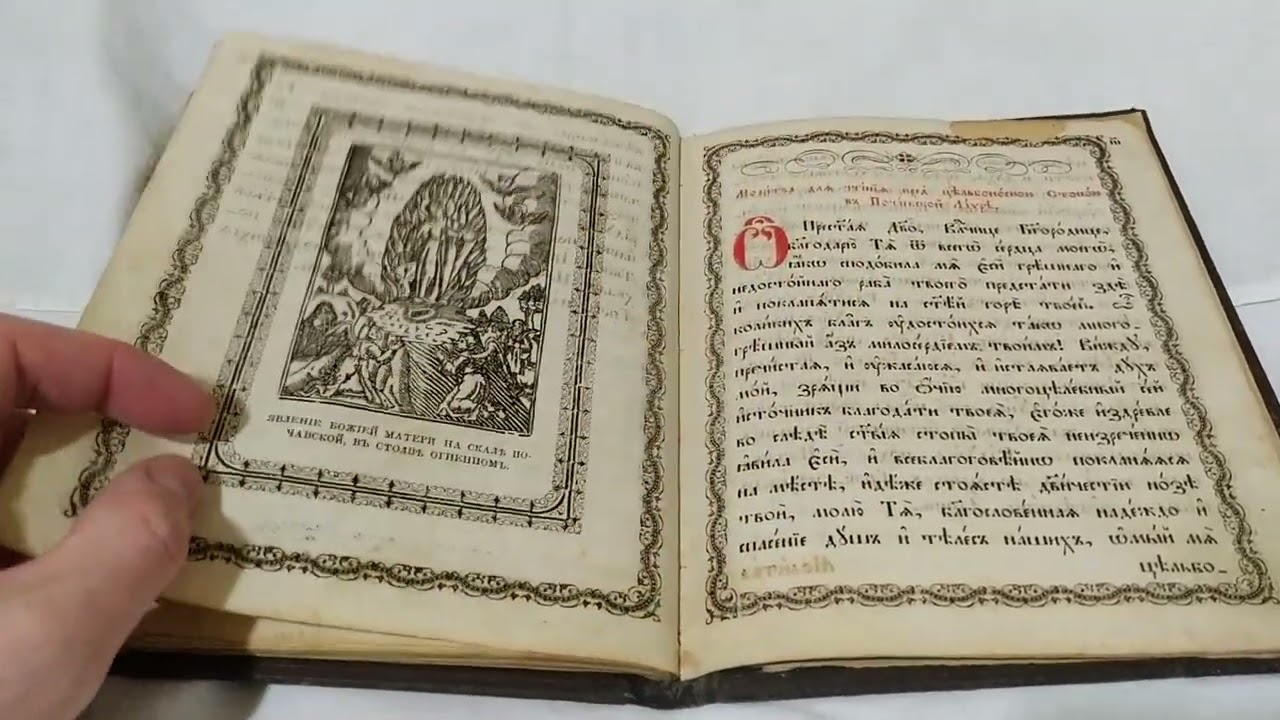 ЯВЛЕНІЕ БОЖІЕЙ МАТЕРИ НА СКАЛѢ ПО-
ЧАЕВСКОЙ, ВЪ СТОЛПѢ ОГНЕННОМЪ.
Моли́тва для чте́нія пред̾ цѣльбоно́сною Стопо́ю
въ Поча́евской Ла́врѣ
Ѽ Прест҃а́ѧ Дв҃о, Влⷣчице Бг҃оро́дице,
благодарю̀ Тѧ̀ ѿ всегѡ̀ се́рдца моегѡ̀,
ꙗ҆́кѡ сподо́била мѧ̀ є҆сѝ грѣ́шнаго и҆
недосто́йнаго раба̀ твоего̀ предста́ти здѣ̀
и҆ поклани́тисѧ на ст҃ѣ́й горѣ̀ твое́й. Ѽ
коли́кихъ бла̑гъ ᲂу҆досто́ихсѧ та́кѡ много-
грѣ́шный а҆́зъ милосе́рдіемъ твои́мъ! Ви́жду,
пречи́стаѧ, и҆ ᲂу҆жаса́юсѧ, и҆ и҆стаява́етъ дꙋ́хъ
мо́й, зрѧ́щи во ѻ҆́чїю многоцѣле́бный се́й
и҆сто́чникъ благода́ти твоеѧ̀, є҆го́же и҆здре́вле
во слѣ́дѣ ст҃ы́ѧ стопы̀ твоеѧ̀ неизрече́ннѡ
ꙗ҆ви́ла є҆сѝ, и҆ всеблагоговѣ́йнѡ покланѧ́ѧсѧ
на мѣ́стѣ, и҆дѣ́же стоѧ́стѣ дв҃и́честіи но́зѣ
твоѝ, молю̀ Тѧ̀, бл҃гослове́ннаѧ наде́ждо и҆
спасе́ніе дꙋ́шъ и҆ тѣле́съ на́шихъ, ѡ҆мы́й мѧ̀
цѣльбо-